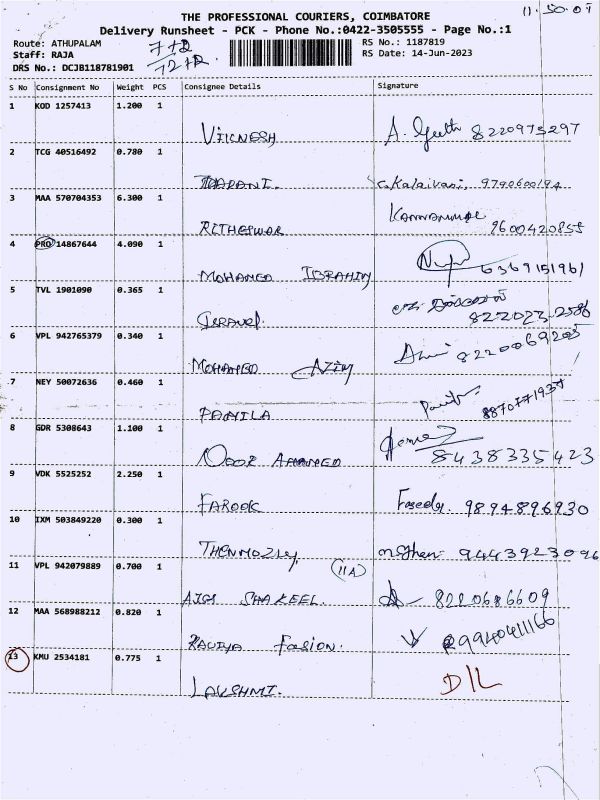 11.50.07
THE PROFESSIONAL COURIERS, COIMBATORE
Delivery Runsheet - PCK - Phone No.:0422-3505555 - Page No.:1
Route: ATHUPALAM RS No.: 1187819
Staff: RAJA RS Date: 14-Jun-2023
DRS No.: DCJB118781901
S No Consignment No Weight PCS Consignee Details Signature
1 KOD 1257413 1.200 1
VIKNESH A. Geeth 8220975297
2 TCG 40516492 0.780 1
C.Kalaivani, 9790600194
3 MAA 570704353 6.300 1
RITHESWAR 9600420855
4 PRO 14867644 4.090 1
MOHAMED IBRAHIM 6369151961
5 TVL 1901090 0.365 1
822023-2586
6 VPL 942765379 0.340 1
MOHAMED AZIM 8220069205
7 NEY 50072636 0.460 1
PAMILA 8870771937
8 GDR 5308643 1.100 1
NOOR AHAMED 8438335423
9 VDK 5525252 2.250 1
FAROOK 9894896930
10 IXM 503849220 0.300 1
THENMOZLY 9443923096
11 VPL 942079889 0.700 1 (11A)
AJGI SHAKEEL. 8220686609
12 MAA 568988212 0.820 1
Fasion. 9940411166
13 KMU 2534181 0.775 1
LAKSHMI. D/L